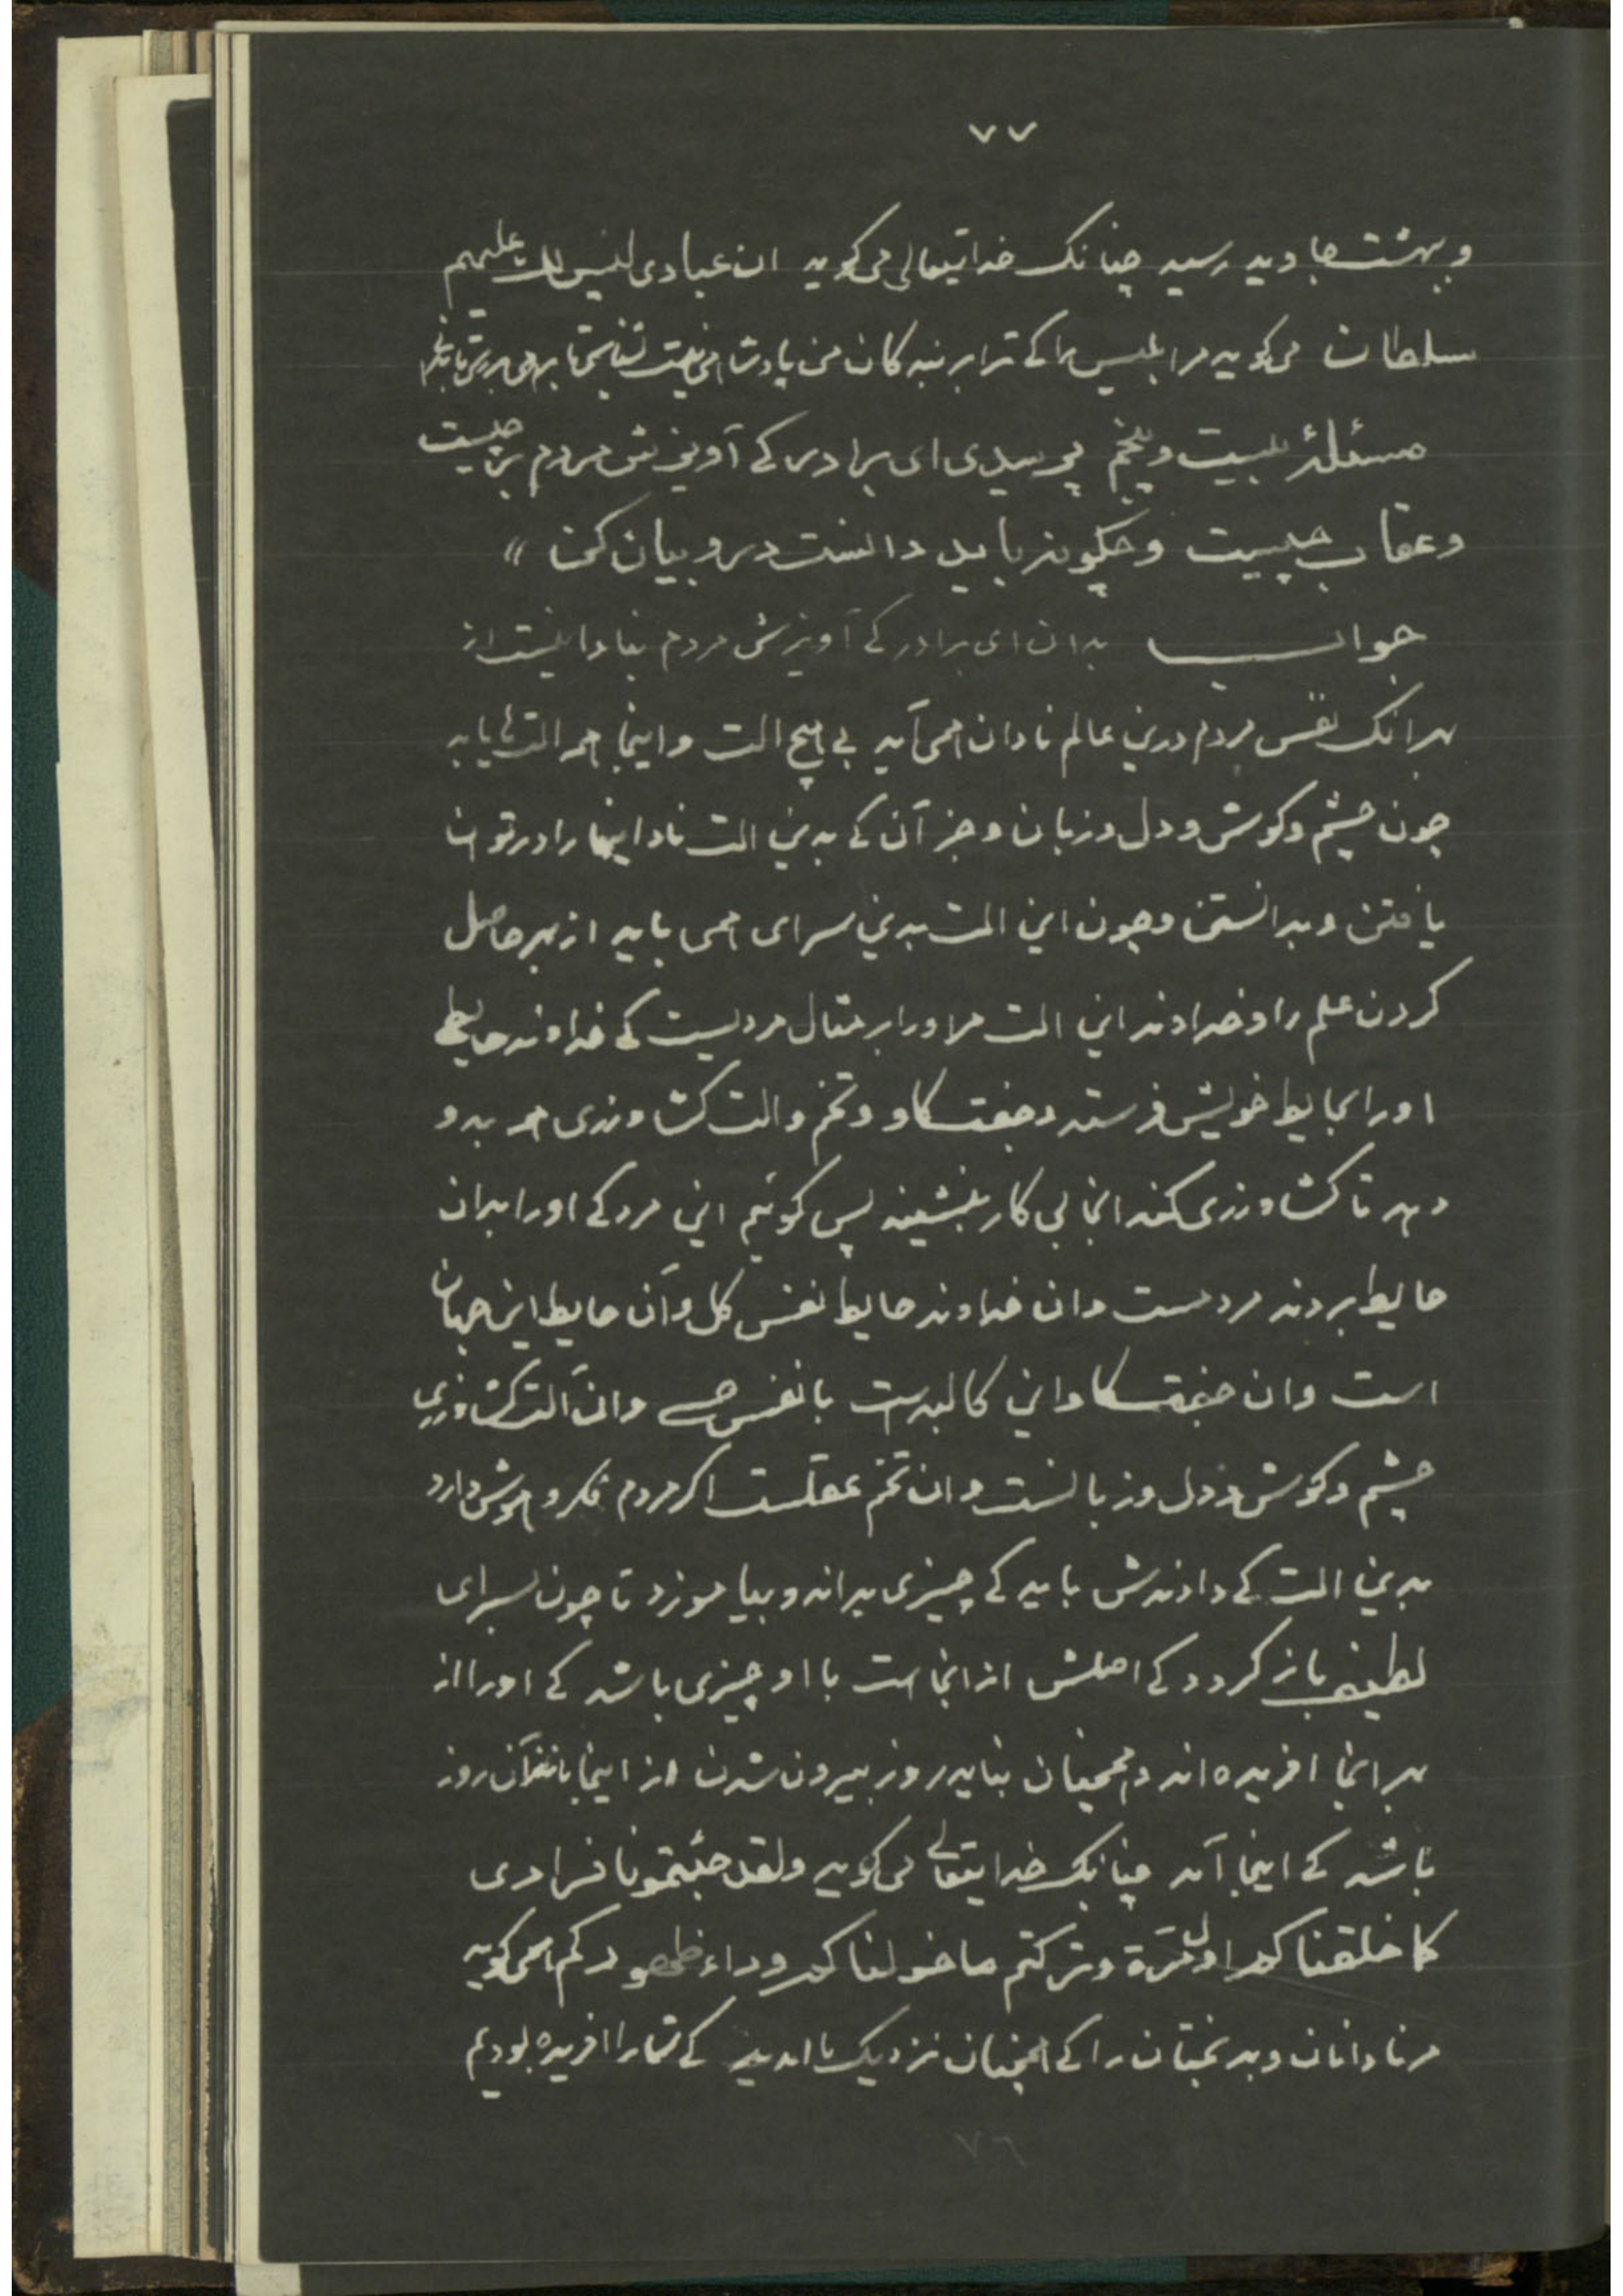 ٧٧
و بهشت جاوید رسید چنانک خدایتعالی می کوید ان عبادی لیس لک علیهم
سلطان می کوید مر ابلیس را کے ترا بر بندکان من پادشاهی نیست
مسئلۀ بیست و پنجم پرسیدی ای برادر کے آویزش مردم بر چیست
و عقاب چیست و چکونه باید دانست درو بیان کن "
جواب بدان ای برادر کے آویزش مردم بنادانیست از
بهر انک نفس مردم درین عالم نادان همی آید بے هیچ الت و اینجا همه التها یابد
چون چشم و کوش و دل و زبان و جز آن کے بدین الت نادانیها را در توان
یافتن و بدانستن و چون این الت بدین سرای همی یابد از بهر حاصل
کردن علم را و خداوند این الت مر اورا بر مثال مردیست کے خداوند حایطے
اورا بحایط خویش فرستد و جفت کاو و تخم و الت کشاورزی همه بدو
دهد تا کشاورزی کند انجا بی کار بنشیند پس کوئیم این مرد کے اورا بدان
حایط بردند مردمست و ان خداوند حایط نفس کل و آن حایط این جهان
است و ان جفت کاو این کالبدست با نفس حسے و ان آلت کشاورزی
چشم و کوش و دل و زبانست و ان تخم عقلست اکر مردم فکر و هوش دارد
بدین الت کے دادندش باید کے چیزی بداند و بیاموزد تا چون بسرای
لطیف باز کردد کے اصلش از انجا است با او چیزی باشد کے اورا از
بهر انجا افریده اند و همچنان نباید روز بیرون شدن از اینجا مانند آن روز
باشد کے اینجا آمد چنانک خدایتعالے می کوید ولقد جئتمونا فرادی
کما خلقناکم اول مرة و ترکتم ما خولناکم وراء ظهورکم همی کوید
مر نادانان و بدبختان را کے همچنان نزدیک ما امدید کے شما را افریده بودیم
٧٦